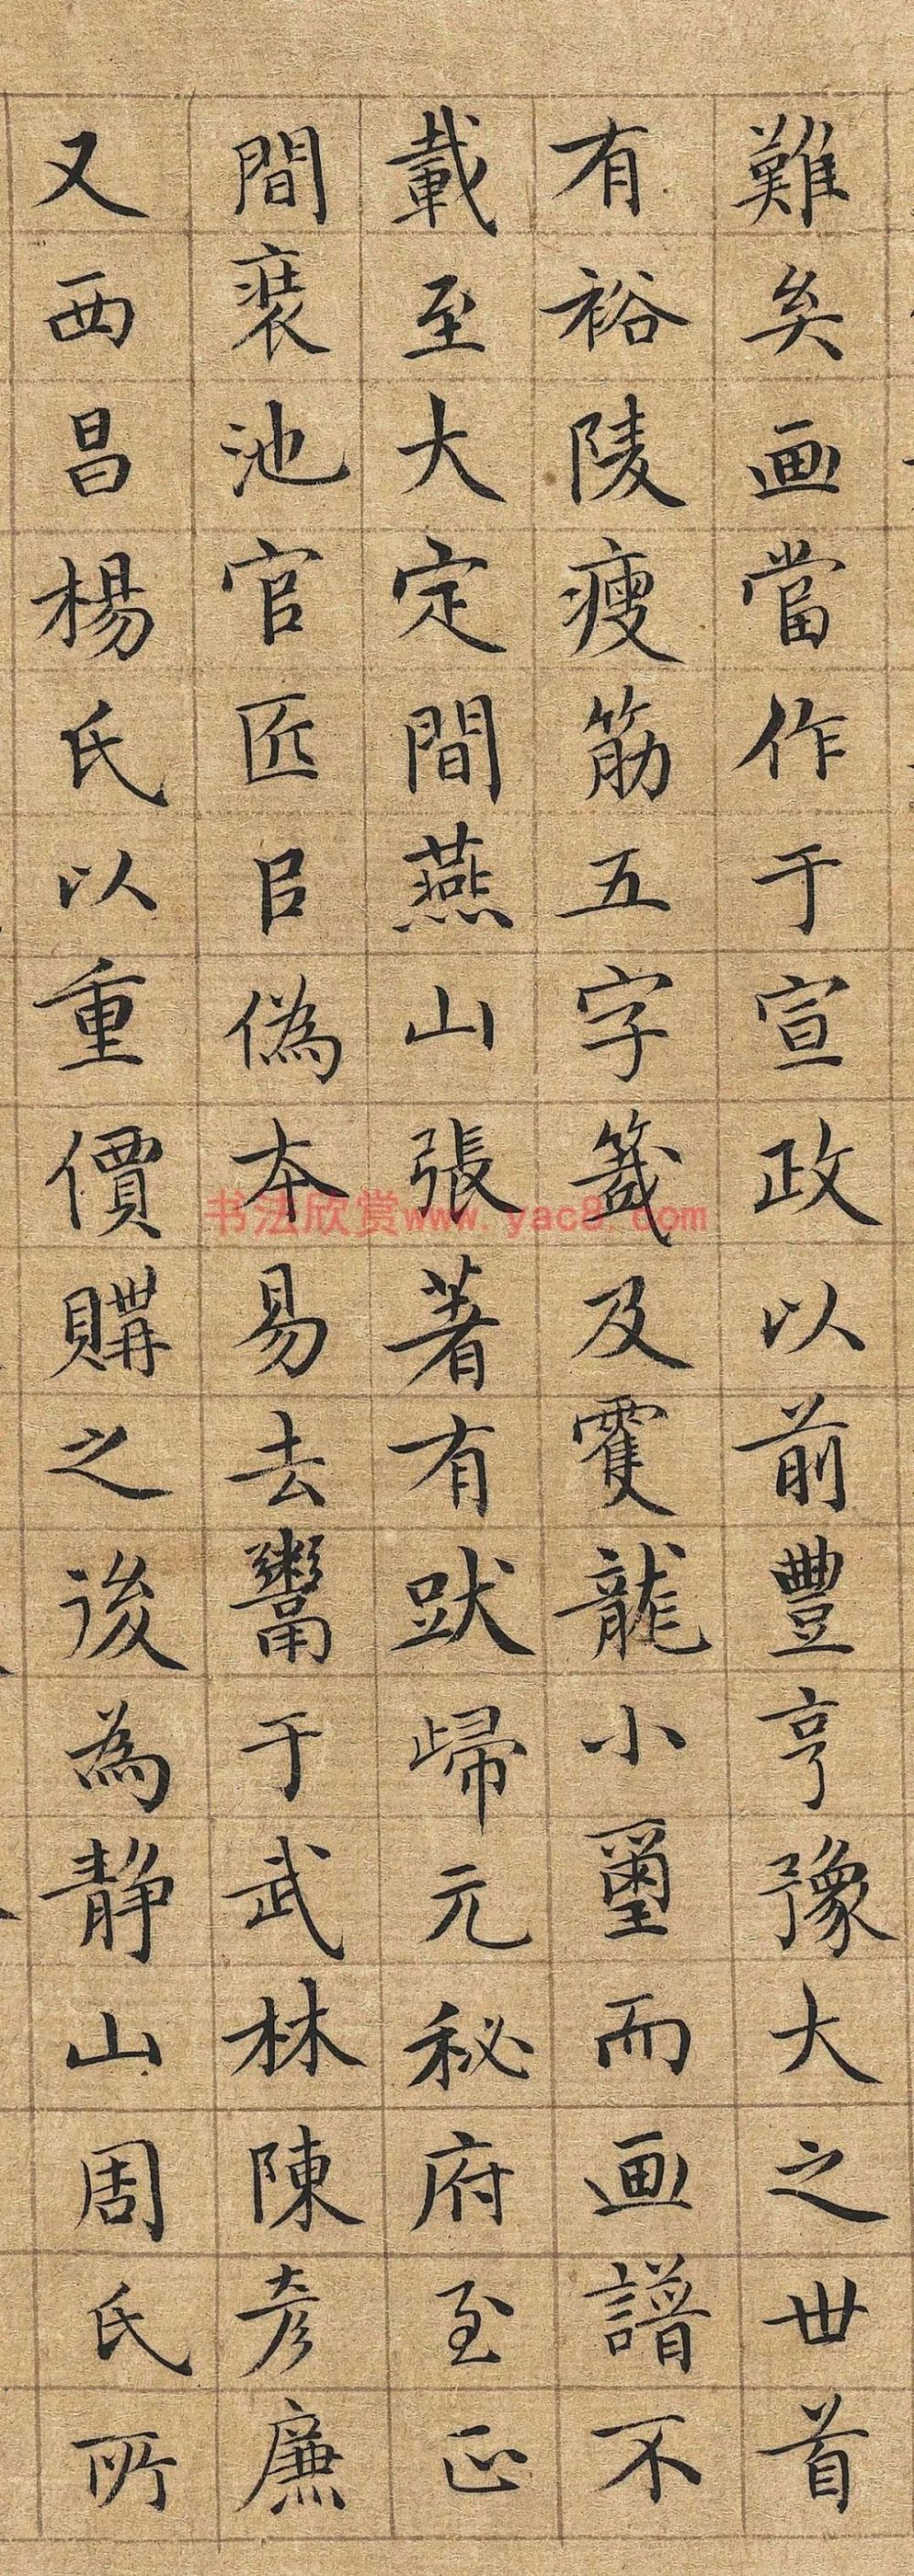 難矣画當作于宣政以前豐亨豫大之世首
有裕陵瘦筋五字籖及雙龍小璽而画譜不
載至大定間燕山張著有跋歸元秘府至正
間裴池官匠以偽本易去鬻于武林陳彥廉
又西昌楊氏以重價購之後為靜山周氏所
书法欣赏www.yac8.com